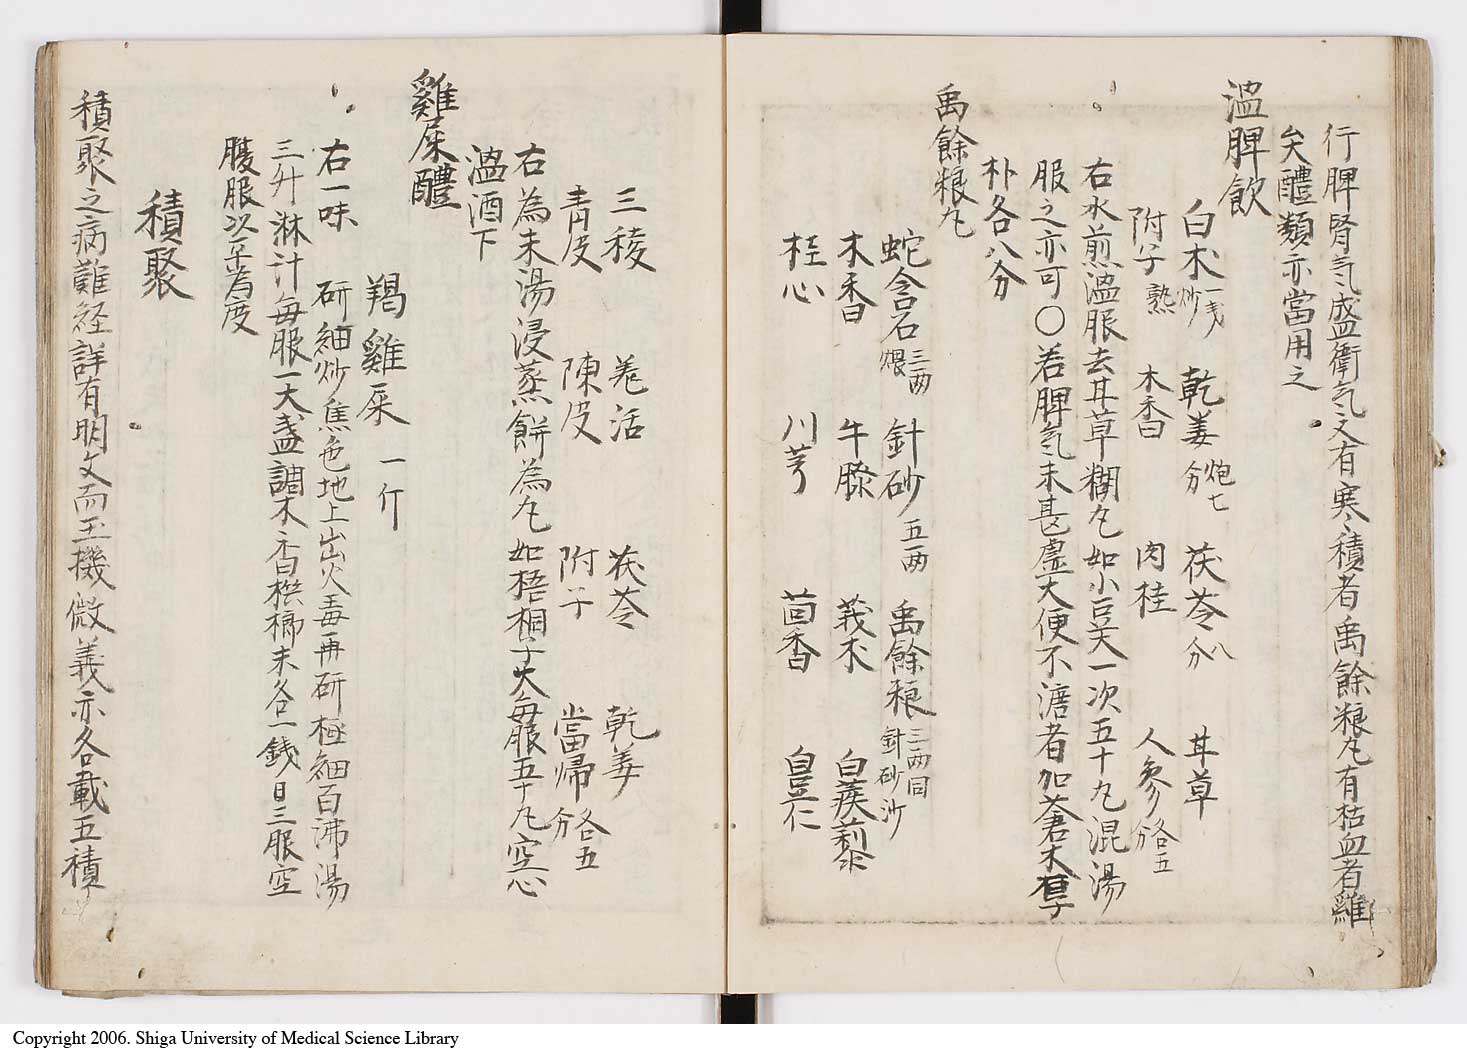 行脾腎気盛衛気又有寒積者禹餘粮丸有枯血者雞
矢醴類亦當用之
温脾飲
白朮炒一戔 乾姜炮七分 茯苓八分 甘草
附子熟 木香 肉桂 人參各五分
右水煎温服去甘草糊丸如小豆大一次五十丸混湯
服之亦可〇若脾気未甚虚大便不溏者加蒼朮厚
朴各八分
禹餘粮丸
蛇含石三两煨 針砂五両 禹餘粮三两同針砂沙
木香 牛膝 莪朮 白蒺藜
桂心 川芎 茴香 白豆仁
三稜 羌活 茯苓 乾姜
青皮 陳皮 附子 當帰各五分
右為末湯浸蒸餅為丸如梧桐子大毎服五十丸空心
温酒下
雞屎醴
羯雞屎一斤
右一味 研細炒焦色地上出火毒再研極細百沸湯
三升淋汁毎服一大盞調木香梹榔末各一錢日三服空
腹服以平為度
積聚
積聚之病難経詳有明文而玉機微義亦各載五積
Copyright 2006. Shiga University of Medical Science Library